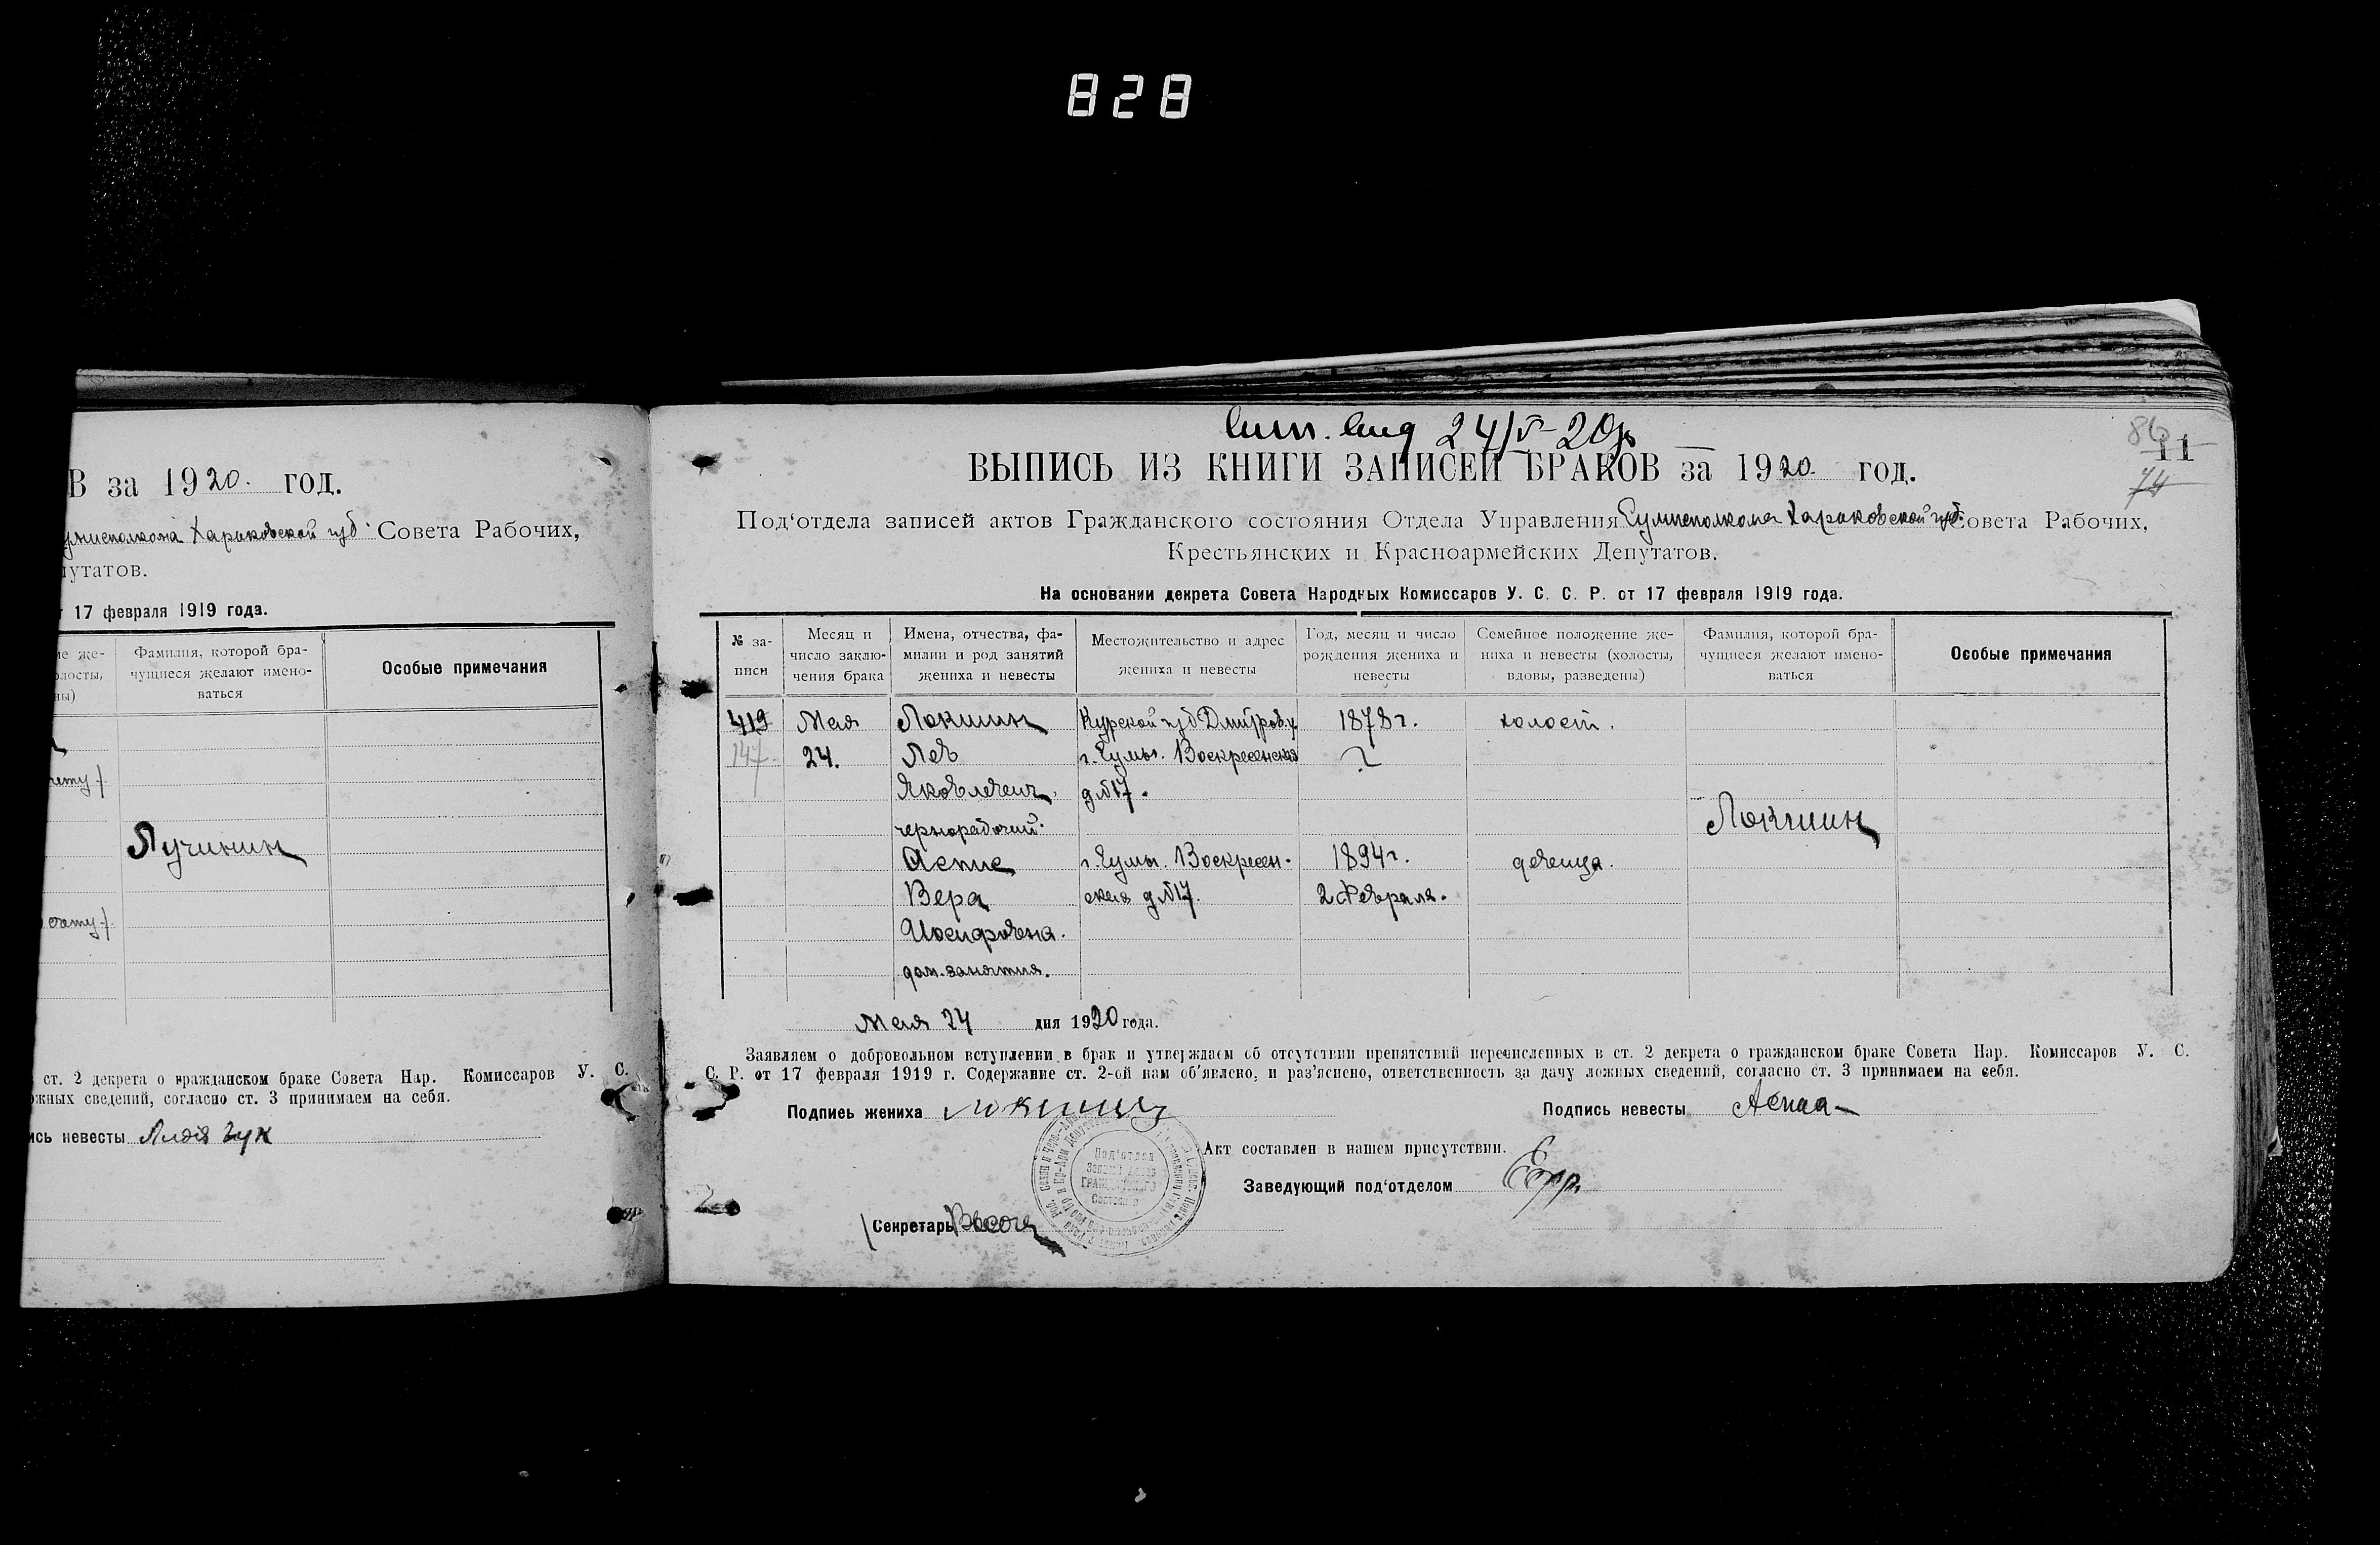 828
В за 1920. год.
Харьковской губ. Совета Рабочих,
путатов.
17 февраля 1919 года.
Фамилия, которой бра-
чущиеся желают имено-
ваться
Особые примечания
Лучинин
ст. 2 декрета о гражданском браке Совета Нар. Комиссаров У. С.
ожных сведений, согласно ст. 3 принимаем на себя.
ись невесты Лидія Зук
24/V-20
86
11
74
ВЫПИСЬ ИЗ КНИГИ ЗАПИСЕЙ БРАКОВ за 1920 год.
Под‘отдела записей актов Гражданского состояния Отдела Управления Сумисполкома Харьковской губ. Совета Рабочих,
Крестьянских и Красноармейских Депутатов.
На основании декрета Совета Народных Комиссаров У. С. С. Р. от 17 февраля 1919 года.
№ за-
писи
Месяц и
число заклю-
чения брака
Имена, отчества, фа-
милии и род занятий
жениха и невесты
Местожительство и адрес
жениха и невесты
Год, месяц и число
рождения жениха и
невесты
Семейное положение же-
ниха и невесты (холосты,
вдовы, разведены)
Фамилия, которой бра-
чущиеся желают имено-
ваться
Особые примечания
419 Мая Локшин Курской губ Дмитров.у. 1878 г. холост.
147 24. Лев г. Сумы. Воскресенская ?
Яковлевич. д №17.
чернорабочий. Локшин
Аспис г. Сумы. Воскресен- 1894 г. девица.
Вера ская д №17. 2 Февраля.
Иосифовна.
дом. занятия.
Мая 24 дня 1920 года.
Заявляем о добровольном вступлении в брак и утверждаем об отсутствии препятствий перечисленных в ст. 2 декрета о гражданском браке Совета Нар. Комиссаров У. С.
С. Р. от 17 февраля 1919 г. Содержание ст. 2-ой нам об‘явлено, и раз‘яснено, ответственность за дачу ложных сведений, согласно ст. 3 принимаем на себя.
Подпись жениха Локшин Подпись невесты
Акт составлен в нашем присутствии.
Заведующий под‘отделом
Секретарь
Под‘отдел
Записи Актов
Гражданского
Состояния